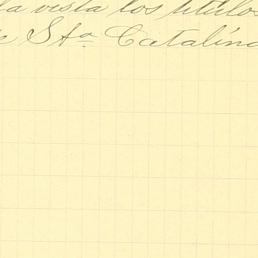 la vista los títulos
Sta Catalina